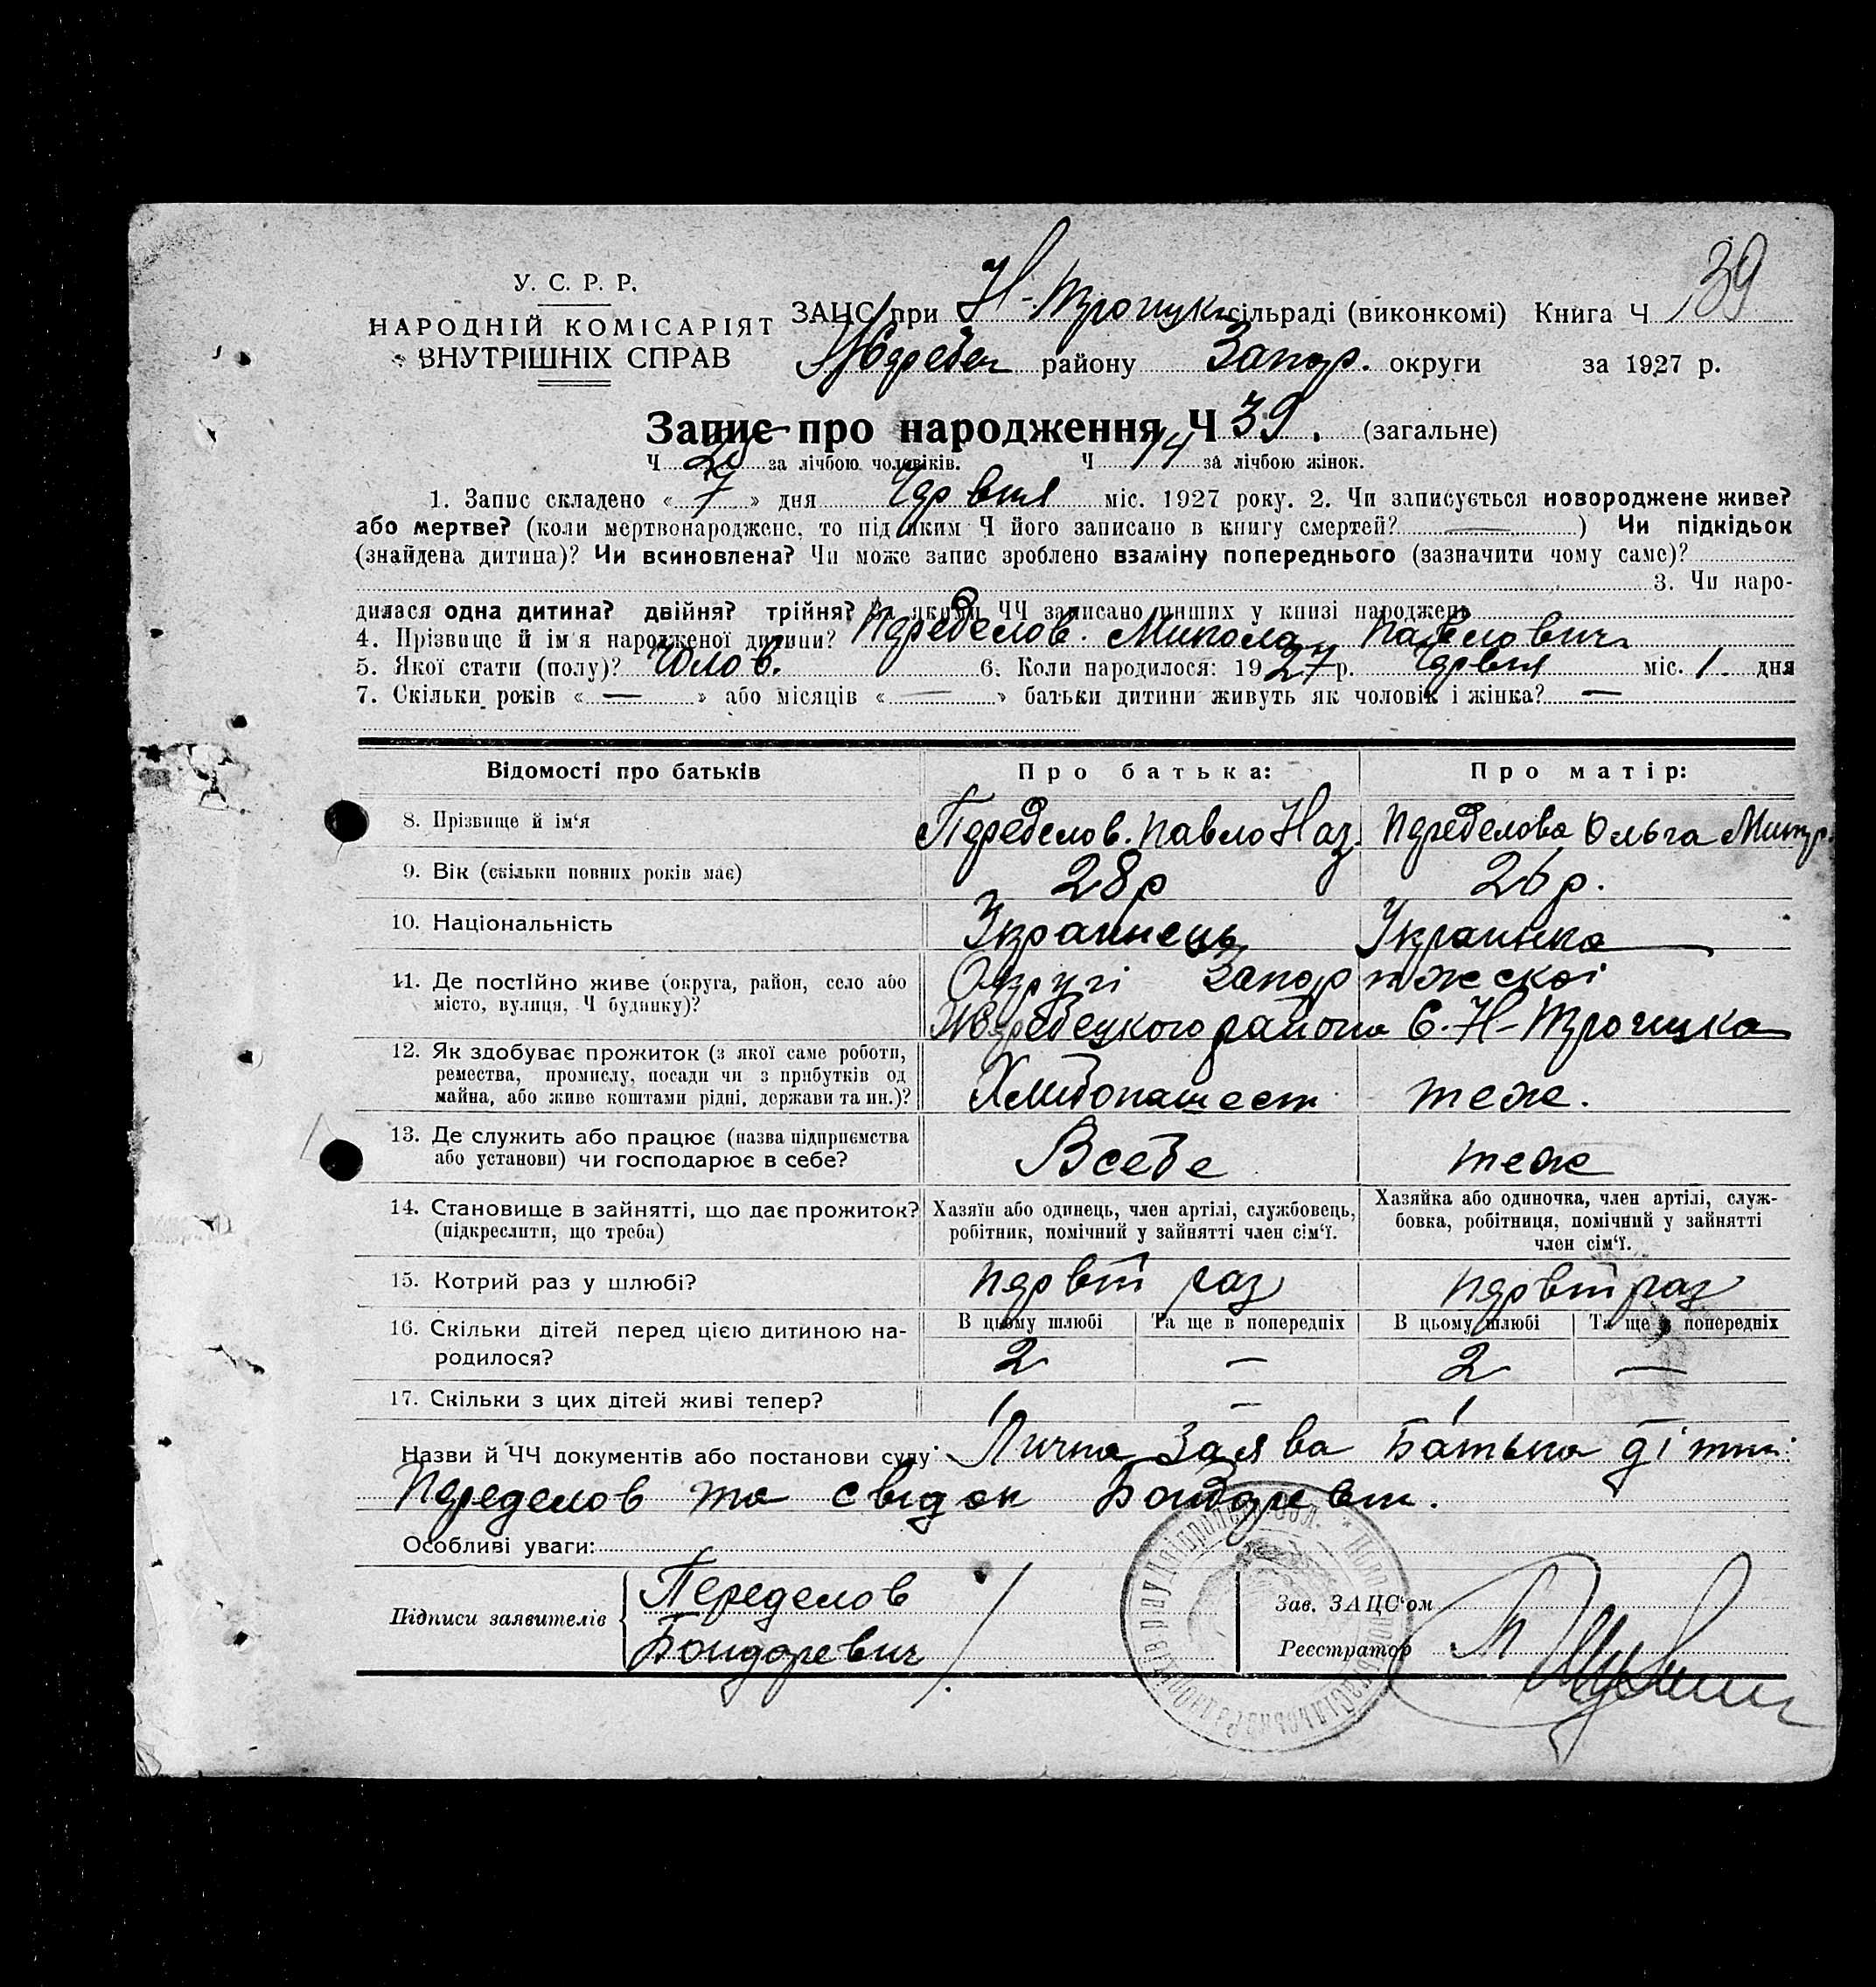 39
У. С. Р. Р.
НАРОДНІЙ КОМІСАРІЯТ
ВНУТРІШНІХ СПРАВ
ЗАЦС при Н- сільраді (виконкомі) Книга Ч
району Запор. округи за 1927 р.
Запис про народження Ч 39. (загальне)
Ч 25 за лічбою чоловіків. Ч 14 за лічбою жінок.
1. Запис складено « 7 » дня Червня міс. 1927 року. 2. Чи записується новороджене живе?
або мертве? (коли мертвонароджене, то під яким Ч його записано в книгу смертей? — ) Чи підкідьок
(знайдена дитина)? Чи всиновлена? Чи може запис зроблено взаміну попереднього (зазначити чому саме)?
3. Чи наро-
дилася одна дитина? двійня? трійня? За якими ЧЧ записано инших у книзі народжень
4. Прізвище й ім'я народженої дитини? Переделов. Микола Павлович
5. Якої стати (полу)? Чолов. 6. Коли народилося: 1927 р. Червня міс. 1. дня
7. Скільки років « — » або місяців « — » батьки дитини живуть як чоловік і жінка? —
Відомості про батьків Про батька: Про матір:
8. Прізвище й ім'я Передслов. Павло Наз. Переделова Ольга
9. Вік (скільки повних років має) 28 р 26 р.
10. Національність Украинець Украинка
11. Де постійно живе (округа, район, село або Округі Запорижскоі
місто, вулиця, Ч будинку)? Жеребецкого района С. Н-
12. Як здобуває прожиток (з якої саме роботи,
ремества, промислу, посади чи з прибутків од
майна, або живе коштами рідні, держави та ин.)? теже.
13. Де служить або працює (назва підприємства
або установи) чи господарює в себе? Всебе теже
14. Становище в зайнятті, що дає прожиток? Хазяїн або одинець, член артілі, службовець, Хазяйка або одиночка, член артілі, служ-
(підкреслити, що треба) робітник, помічний у зайнятті член сім'ї. бовка, робітниця, помічний у зайнятті
член сім'ї.
15. Котрий раз у шлюбі? первий раз первий раз
16. Скільки дітей перед цією дитиною на- В цьому шлюбі Та ще в попередніх В цьому шлюбі Та ще в попередніх
родилося? 2 — 2 —
17. Скільки з цих дітей живі тепер? 1 — 1
Назви й ЧЧ документів або постанови суду Лична заява батька дітини:
Переделов та свідок Бондаревич.
Особливі уваги:
Підписи заявителів Переделов
Бондаревич
Зав. ЗАЦС'ом
Реєстратор